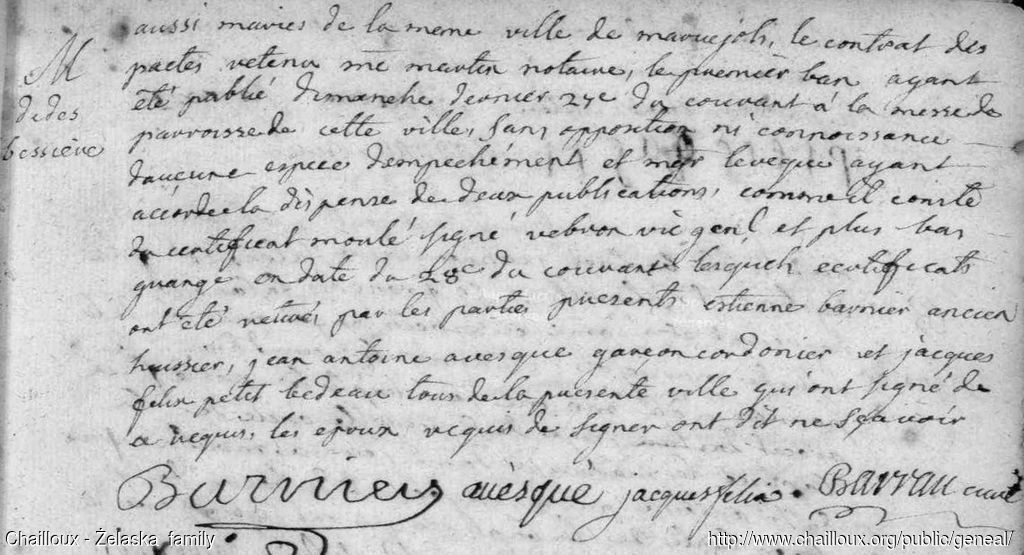 aussi maries de la meme ville de maruejols, le contrat des
M
pactes retenu me martin notaire, le premier ban ayant
été publié dimanche dernier 27e du courant à la messe de
de des
parroisse de cette ville, sans opposition ni connoissance
bessiere
daucune espece dempechément et mgr leveque ayant
accordé la dispense de deux publications, comme il conste
du certificat moulé signé vebron vic genl et plus bas
en date du 28e du courant lesquels certificats
ont été retirés par les parties presents estienne barnier ancien
hussier, jean antoine avesque garçon cordonier et jacques
felix petit bedeau tous de la presente ville qui ont signé de
ce requis, les epoux requis de signer ont dit ne sçavoir
Barnier avesque jacques felix Barrau curé
Chailloux - Żelaska family http://www.chailloux.org/public/geneal/